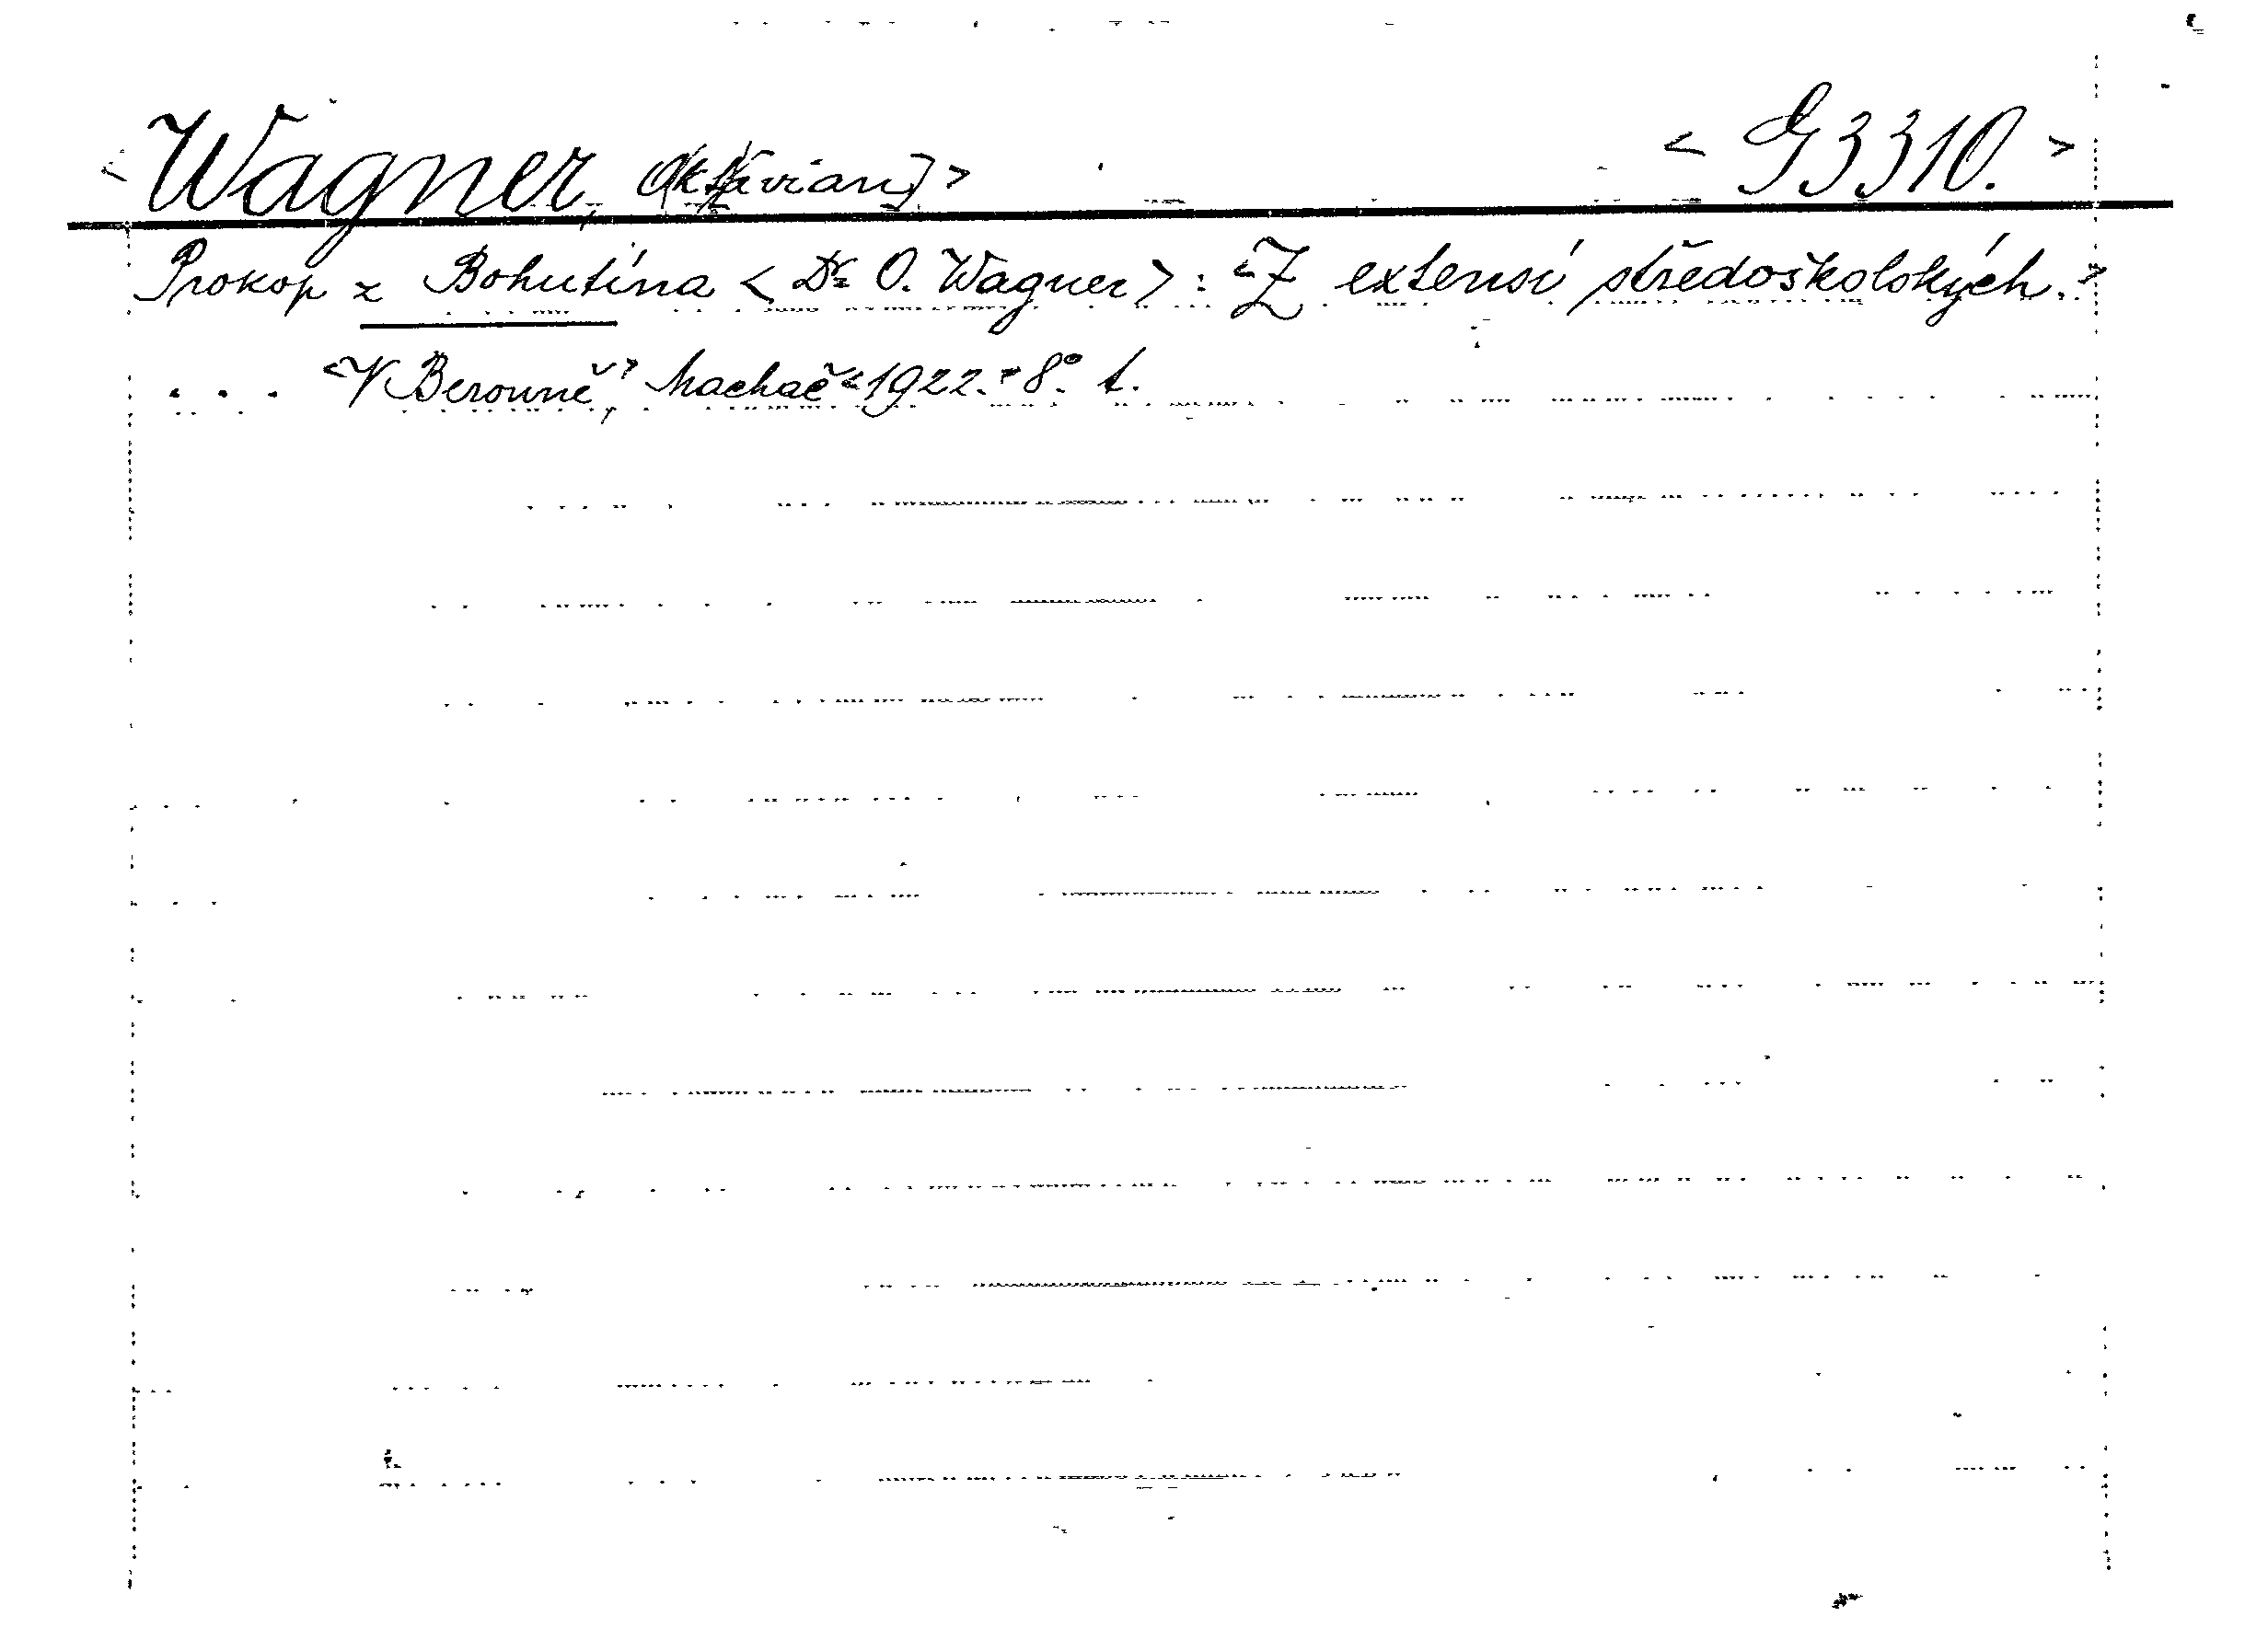 <Wagner, Oktavian]> <G 3310.>
Prokop z Bohutína <Dr O. Wagner> : <Z extensí středoškolských.>
... <V Berouně,> Machač <1922.> 8°. t.